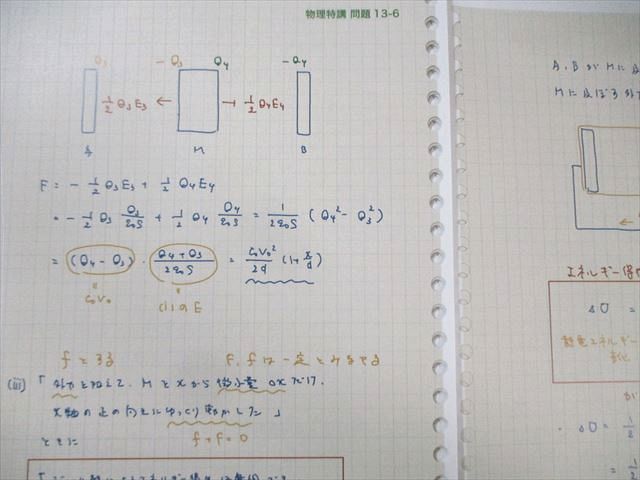 物理特講 問題 13-6
Q₃ -Q₃ Q₄ -Q₄
½ Q₃E₃ ← → ½ Q₄E₄
A M B
F = - ½ Q₃E₃ + ½ Q₄E₄
= - ½ Q₃ Q₃/ε₀S + ½ Q₄ Q₄/ε₀S = 1/2ε₀S (Q₄² - Q₃²)
= (Q₄ - Q₃) · (Q₄ + Q₃)/2ε₀S = C₀V₀²/2d (1 + x/d)
C₀V₀ (i)のE
fとする F, fは一定とみなせる
(iii) 「外力を加えて、Mをxから微小量 Δxだけ、
x軸の正の向きにゆっくり動かした」
ときに f + F = 0
A, BがMに
Mに及ぼす
エネルギー
ΔU =
静電エネルギー
変化
が
ΔU = 1
= 1